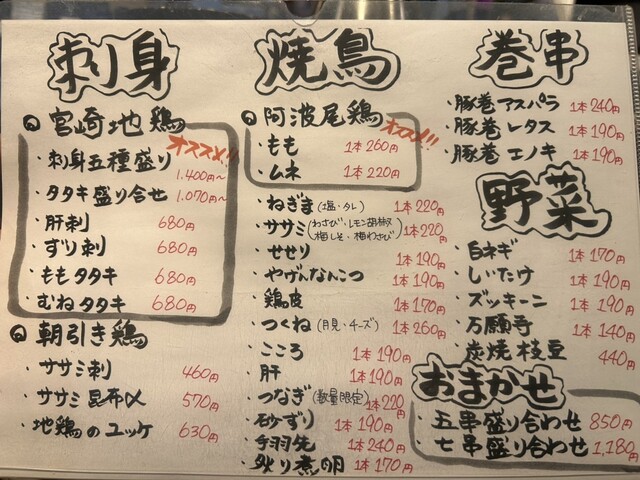 刺り身
宮崎地鶏
オススメ!!
・刺身五種盛り 1.400円~
・タタキ盛り合せ 1.070円~
・肝刺 680円
・ずり刺 680円
・ももタタキ 680円
・むねタタキ 680円
朝引き鶏
・ササミ刺 460円
・ササミ昆布〆 570円
・地鶏のユッケ 630円
焼鳥
阿波尾鶏
オススメ!!
・もも 1本260円
・ムネ 1本220円
・ねぎま(塩・タレ) 1本220円
・ササミ(わさび・レモン胡椒 梅しそ・梅わさび) 1本220円
・せせり 1本190円
・やげんなんこつ 1本190円
・鶏皮 1本170円
・つくね(月見・チーズ) 1本260円
・こころ 1本190円
・肝 1本190円
・つなぎ(数量限定) 1本220円
・砂ずり 1本190円
・手羽先 1本240円
・炙り煮卵 1本170円
巻串
・豚巻アスパラ 1本240円
・豚巻レタス 1本190円
・豚巻エノキ 1本190円
野菜
・白ネギ 1本170円
・しいたけ 1本190円
・ズッキーニ 1本190円
・万願寺 1本140円
・炭焼枝豆 440円
おまかせ
・五串盛り合わせ 850円
・七串盛り合わせ 1,180円